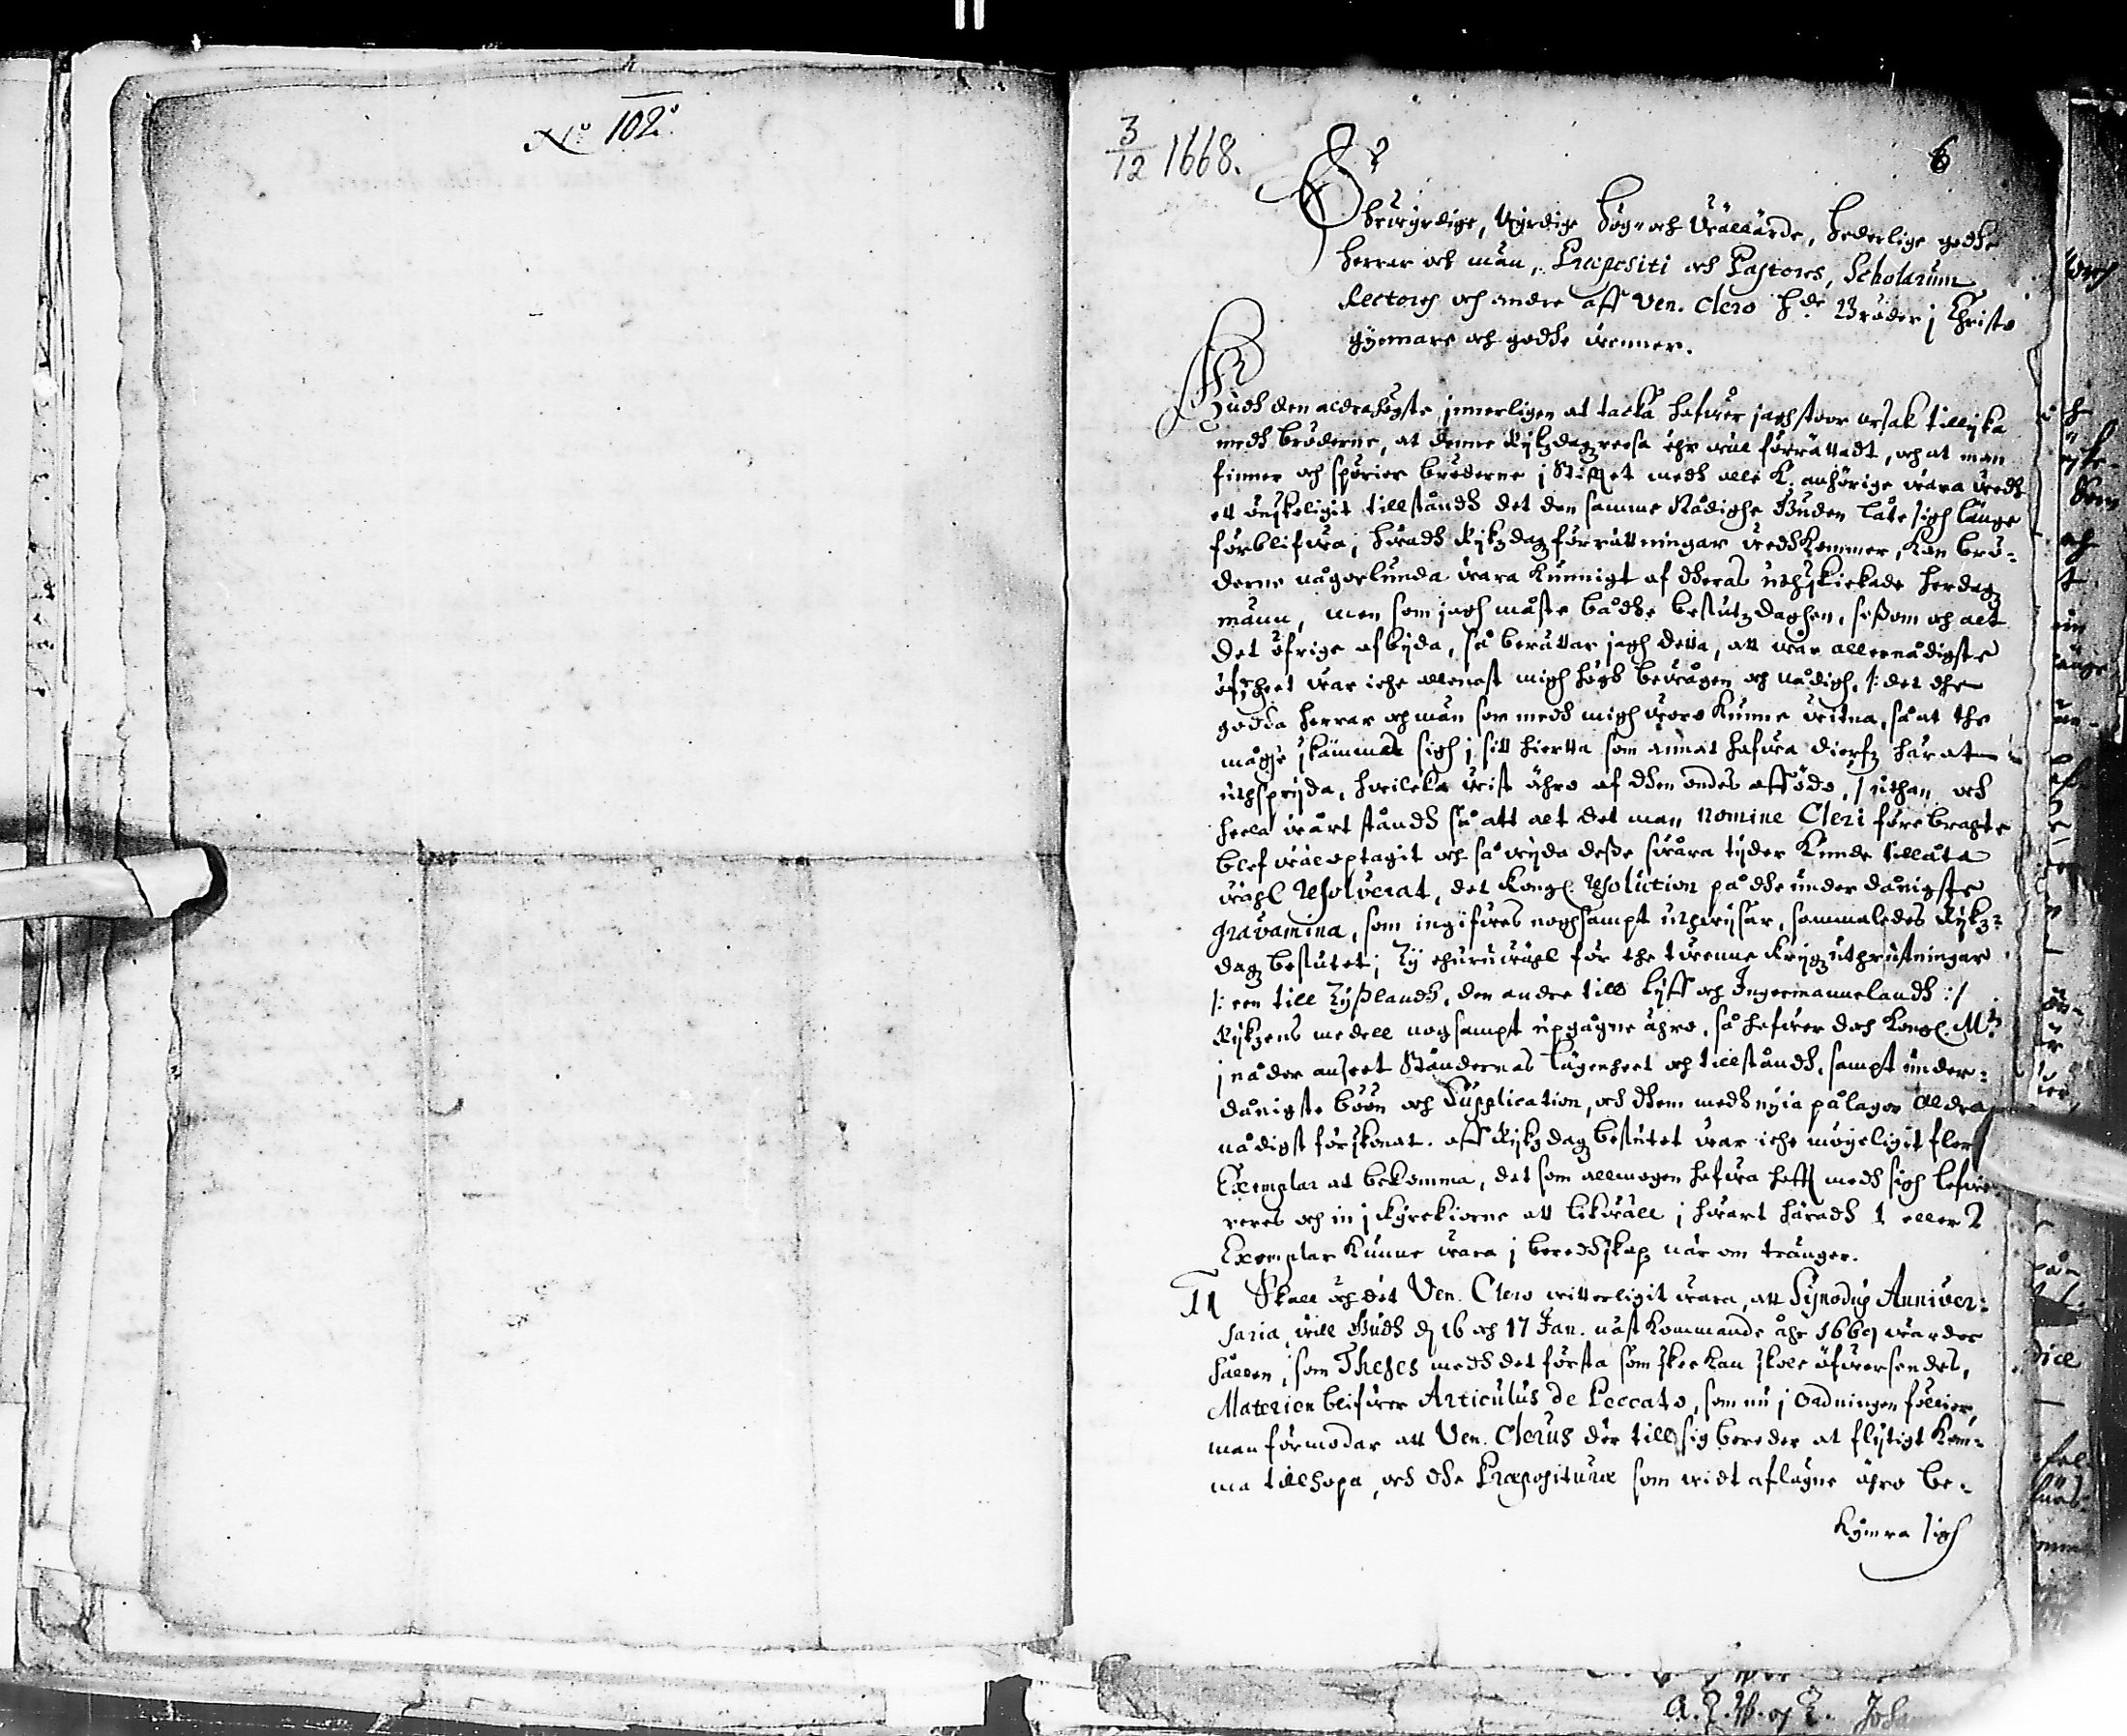 No 102.
3/12 1668.
6
Ehrewyrdige, Wyrdige Hög- och Wällärde, Hederlige godhe
herrar och män, Præpositi och Pastores, Scholarum
Rectores och andre aff Ven. Clero h:de Bröder j Christo
gynnare och godhe wenner.
Gudh den aldrahögste innerligen at tacka hafwer jagh stoor orsak tillijka
medh bröderne, at denne Rijkzdagz reesa ähr wäl förrättadt, och at man
finner och spörier bröderne j Stifftet medh alle K. anhörige wara wedh
ett önskeligit tillståndh det den samme Nådighe Guden låte sigh länge
förblifwa; hwadh Rijkzdagz förrättningar wedhkommer, kan brö-
derne någorlunda wara kunnigt af dheras uthskickade herdagz
männ, men som jagh måste bådhe beslutz daghen, såsom och alt
det öfrige afbijda, så berättar jagh detta, att wår allernådigste
öfwerheet war iche allenast migh högt bewågen och nådigh, /: det dhe
godha herrar och män som medh migh woro kunne witna, så at the
måghe skämma sigh j sitt hierta som annat hafwa dierfz här at
uthsprijda, hwilcka wist ähro af dhen ondes afföda, / uthan och
heela wårt ståndh så att alt det man nomine Cleri förebragte
blef wäl optagit och så wijda desse swåra tijder kunde tillåta
wähl resolverat, det Kongl. resolution på dhe underdånigste
gravamina, som ingifwes noghsampt uthwijsar, sammaledes Rijkz-
dagz beslutet; Ty ehuruwähl för the twenne Krijgzuthrustningar
/: een till Tysslandh, den andre till Lijff och Ingermannelandh :/
Rijkzens medell nogsampt upgågne ähro, så hafwer doch Kongl. M:tz
j nåder ansett Ständernas lägenheet och tillståndh, sampt under-
dånigste böön och Supplication, och dhem medh nyia pålagor aldra
nådigst förskonat. aff Rijkzdagz beslutet war iche möyeligit flere
Exemplar at bekomma, det som allmogen hafwa hafft medh sigh lefwe-
reres och in j Kyrckiorne att likwäll j hwart häradh 1 eller 2
Exemplar kunne wara j beredskap när om tränger.
Skall och det Ven. Clero witterligit wara, att Synodus Anniver-
saria, will Gudh d. 16 och 17 Jan. näst kommande åhr 1669 warder
hållen, som Theses medh det första som skee kan skole öfwersendes,
Materien blifwer Articulus de Peccato, som nu j ordningen föllier,
man förmodar att Ven. Clerus der till sig bereder at flijtigt kom-
ma tillhopa, och dhe Præpositurer som widt aflägne ähro be-
kymra sigh